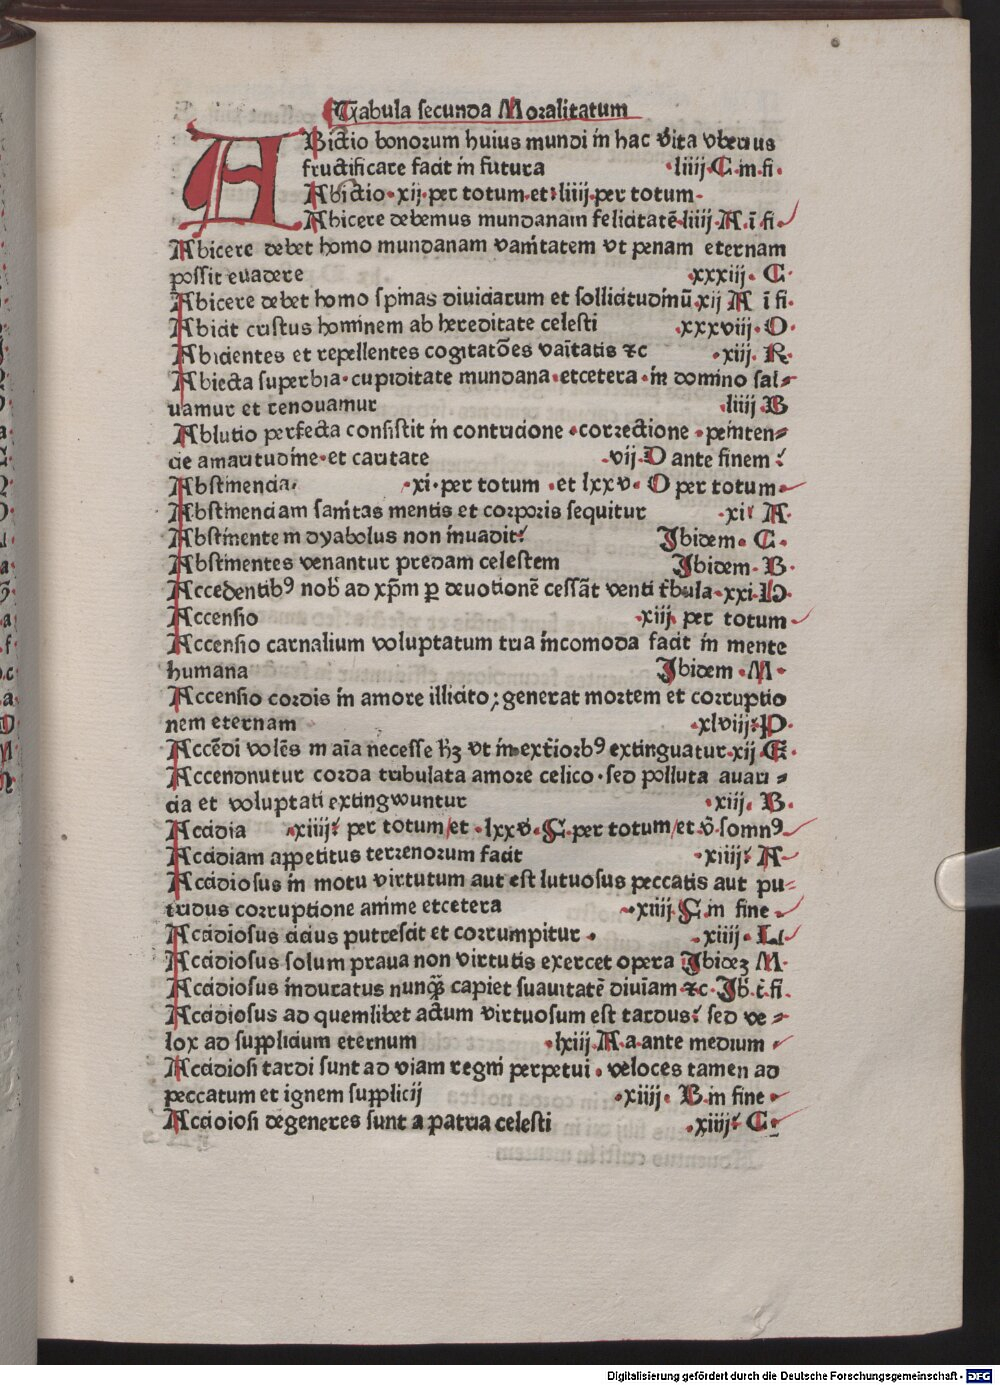 Tabula secunda Moralitatum
ABiectio bonorum huius mundi in hac vita vberius
fructificare facit in futura ·liiij·C·in·fi·
Abiectio·xij·per totum·et·liiij·per totum·
Abicere debemus mundanam felicitatē·liiij·A·ī fi·
Abicere debet homo mundanam vanitatem vt penam eternam
possit euadere ·xxxiij·C·
Abicere debet homo spinas diuiciarum et sollicitudinū xij A ī fi·
Abicit cristus hominem ab hereditate celesti ·xxxviij·O·
Abicientes et repellentes cogitatōes vaītatis ⁊c ·xiij·R·
Abiecta superbia·cupiditate mundana·etcetera·in domino sal⸗
uamur et renouamur ·liiij B
Ablutio perfecta consistit in contricione·correctione·peniten⸗
cie amaritudine·et caritate ·vij·D ante finem
Abstinencia· ·xi·per totum·et lxxv·O per totum·
Abstinenciam sanitas mentis et corporis sequitur ·xi A·
Abstinentem dyabolus non inuadit Ibidem·C·
Abstinentes venantur predam celestem Ibidem·B·
Accedentibꝰ nob ad xp̄m ꝑ deuotionē cessāt venti t̄bula·xxi·D·
Accensio ·xiij·per totum
Accensio carnalium voluptatum tria incomoda facit in mente
humana Ibidem·M·
Accensio cordis in amore illicito; generat mortem et corruptio
nem eternam ·xlviij·P·
Accēdi volēs in aīa necesse hꝫ vt in exteriorbꝰ extinguatur·xij E·
Accendnutur corda tribulata amore celico·sed polluta auari⸗
cia et voluptati extingwuntur ·xiij·B·
Accidia ·xiiij·per totum/et·lxxv·S·per totum/et v̄ somnꝰ
Accidiam appetitus terrenorum facit ·xiiij·A
Accidiosus in motu virtutum aut est lutuosus peccatis aut pu⸗
tridus corruptione anime etcetera ·xiiij·S·in fine·
Accidiosus cicius putrescit et corrumpitur· ·xiiij·L
Accidiosus solum praua non virtutis exercet opera Ibideꝫ M·
Accidiosus induratus nunqͣꝫ capiet suauitatē diuīam·⁊c·Ib·ī·fi·
Accidiosus ad quemlibet actum virtuosum est tardus: sed ve⸗
lox ad supplicium eternum ·lxiij·A·a·ante medium·
Accidiosi tardi sunt ad viam regni perpetui·veloces tamen ad
peccatum et ignem supplicij ·xiiij·B·in fine·
Accidiosi degeneres sunt a patria celesti ·xiiij·C·
Digitalisierung gefördert durch die Deutsche Forschungsgemeinschaft - DFG